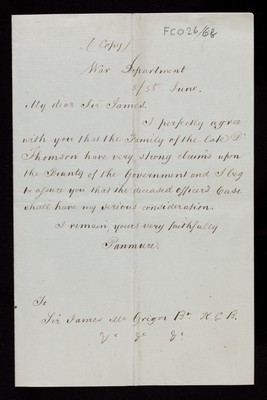 (Copy)
FCO26/68
War Department
June.
My dear Sir James.
I perfectly agree
with you that the Family of the late Dr
Thomson have very strong claims upon
the Bounty of the Government and I beg
to assure you that the deceased officers Case
shall have my serious consideration.
I remain, yours very faithfully
Panmure.
To
Sir James Mc Grigor Bt. K.C.B.
&c &c &c